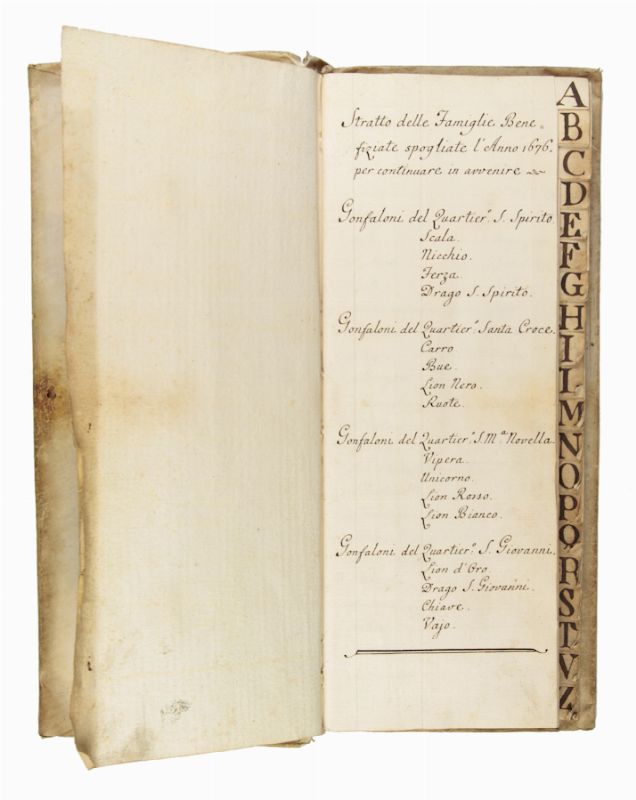 Stratto delle Famiglie Bene=
fiziate spogliate l'Anno 1676.
per continuare in avvenire
Gonfaloni del Quartier.e S. Spirito.
Scala.
Nicchio.
Ferza.
Drago S. Spirito.
Gonfaloni del Quartier.e Santa Croce.
Carro.
Bue.
Lion Nero.
Ruote.
Gonfaloni del Quartier.e S. M.a Novella.
Vipera.
Unicorno.
Lion Rosso.
Lion Bianco.
Gonfaloni del Quartier.e S. Giovanni.
Lion d'Oro.
Drago S. Giovanni.
Chiave.
Vajo.
A
B
C
D
E
F
G
H
I
L
M
N
O
P
Q
R
S
T
V
Z